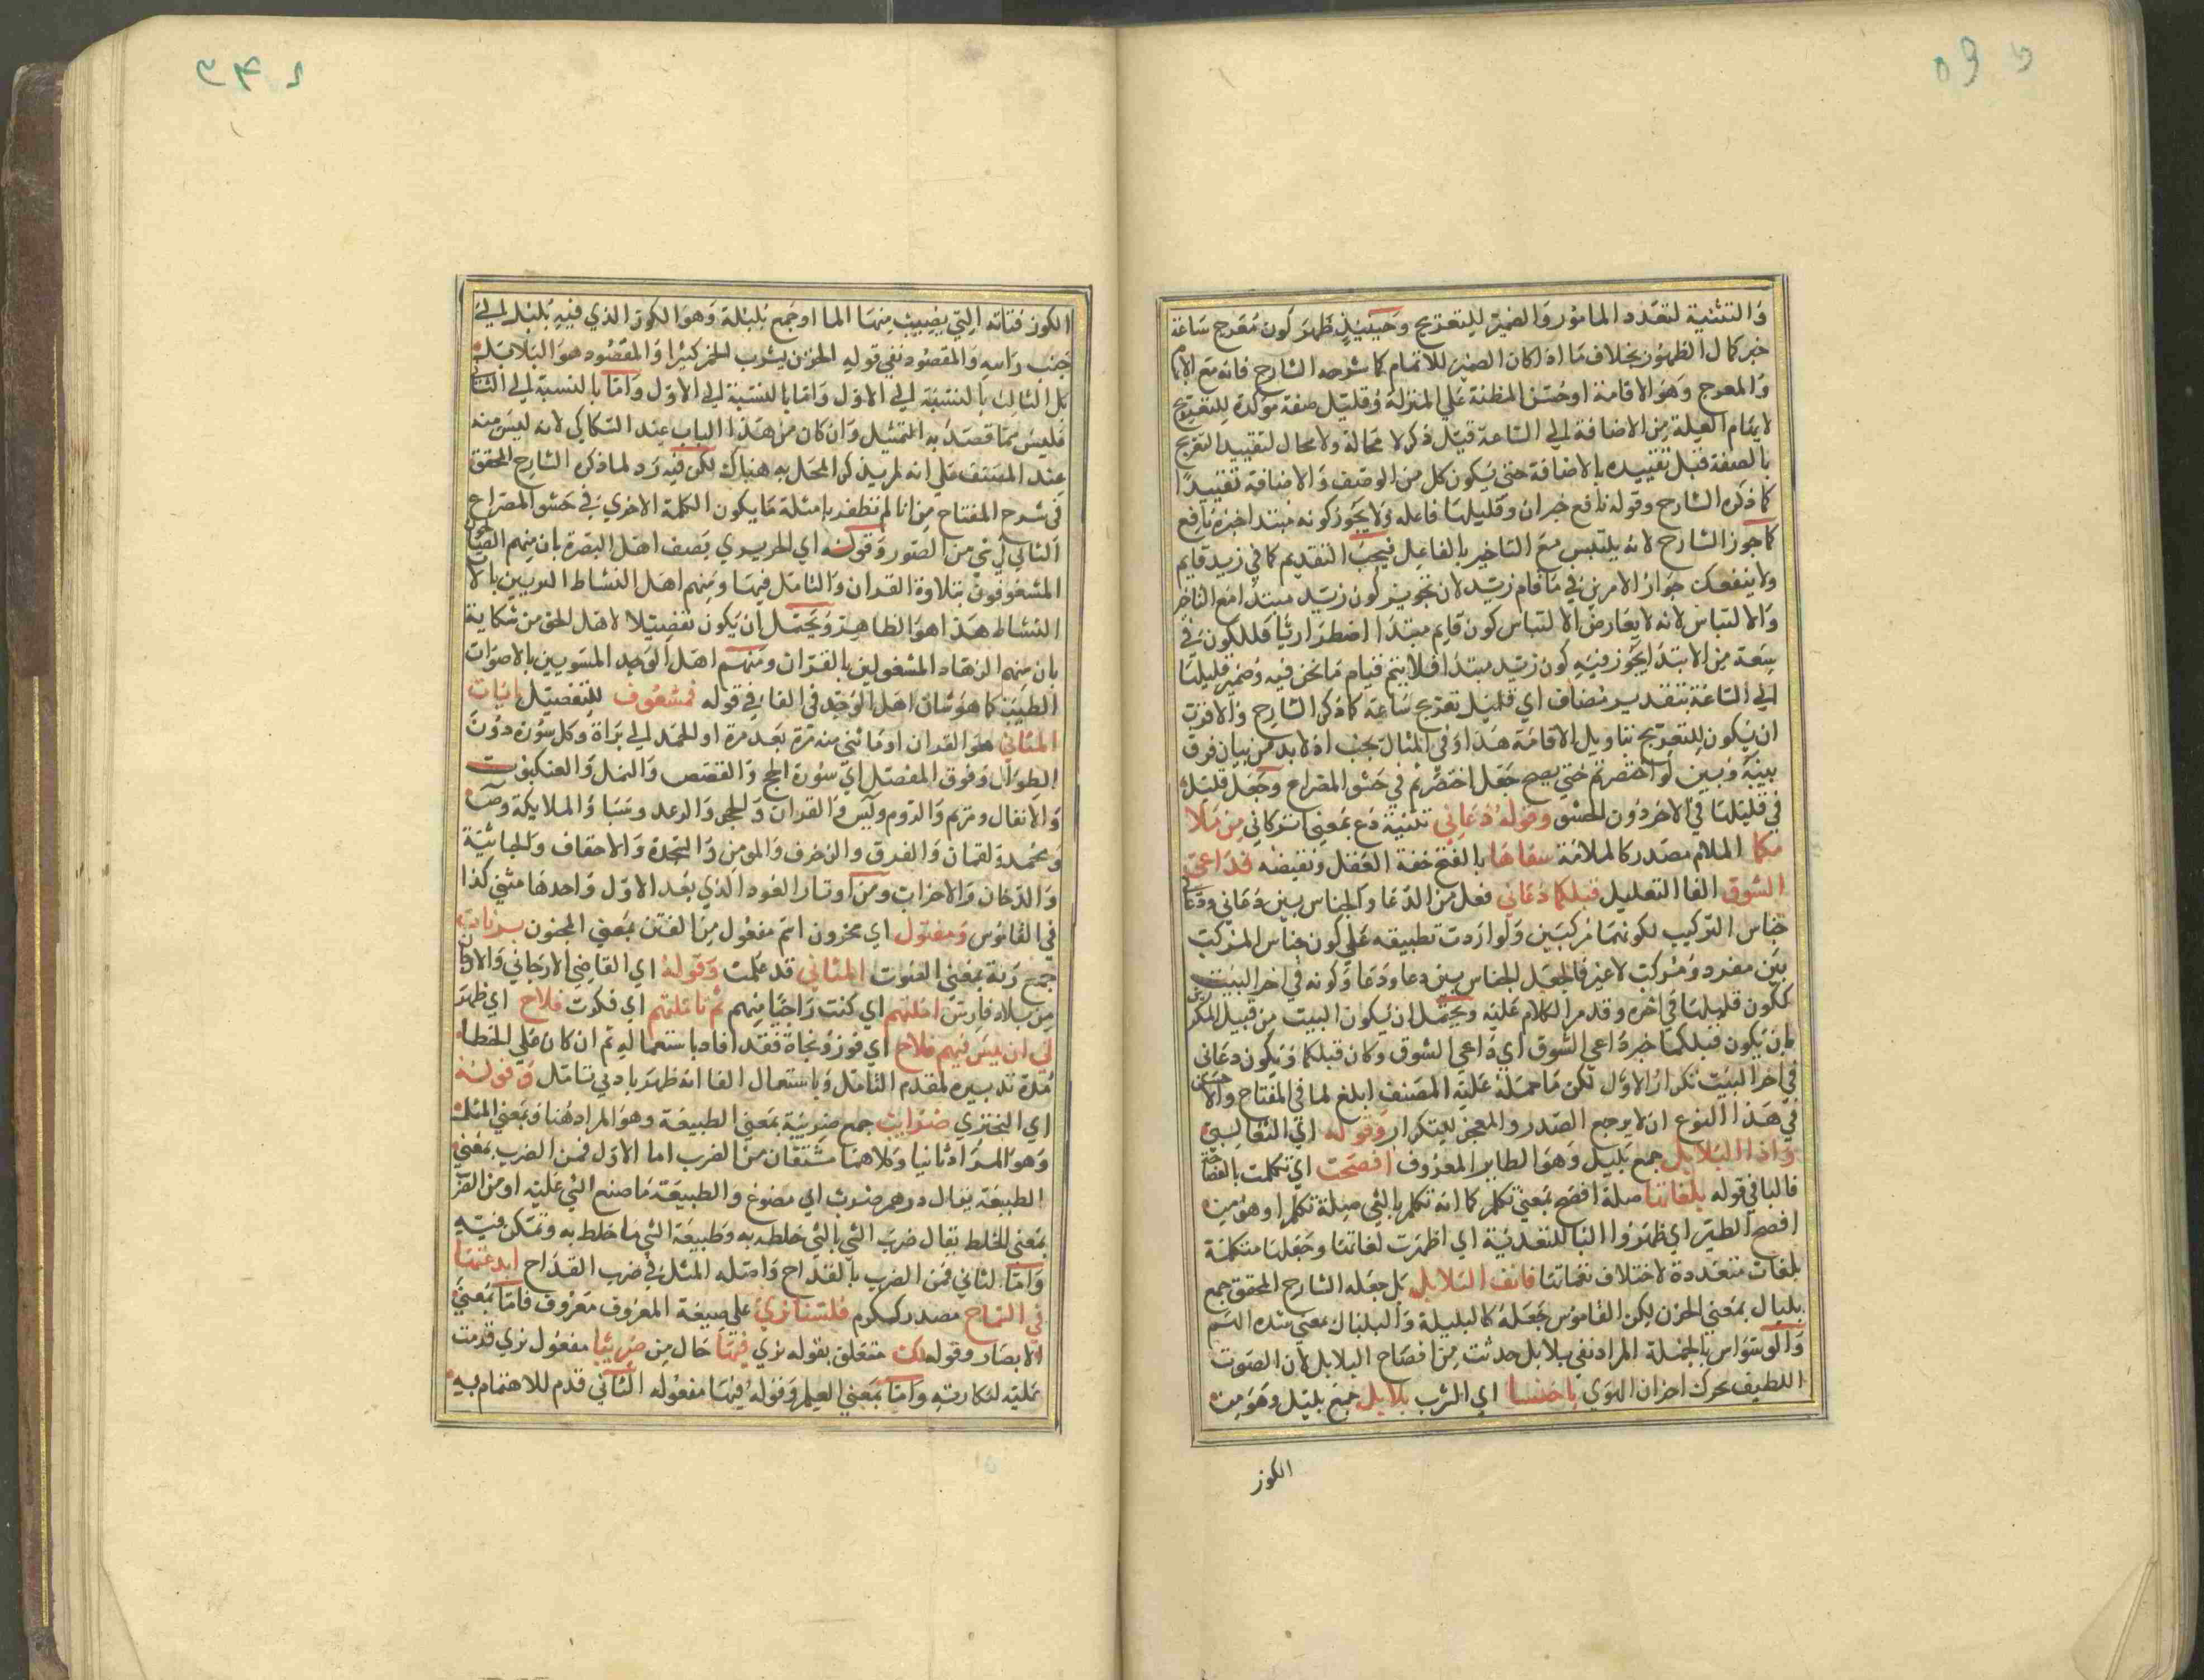 والتثنية لتعدد المامور والضمير للتعريج وحينيذ ظهر كون معرج ساعة
خبر كال الظهور بخلاف ما اذا كان الضمير للالمام كما شرحه الشارح فانه مع الالمام
والمعرج وهو الاقامة او حبس المطية على المنزلة وقليل صفة موكدة للتعريج
لا يقام العلة من الاضافة الى الساعة قبل ذكر لا محالة ولا مجال لتقييد التعريج
بالصفة قبل تقييده بالاضافة حتى يكون كل من الوصف والاضافة تقييدا
كما ذكره الشارح وقوله نافع خبران وقليلها فاعله ولا يجوز كونه مبتدا خبره نافع
كما جوز الشارح لانه يلتبس مع التاخير بالفاعل فيجب التقديم كما في زيد قايم
ولا ينفعك جواز الامرين في ما قام زيد لان تجويز كون زيد مبتدا مع التاخر
والالتباس لانه لا يعارض الالتباس كون قايم مبتدا اضطراريا فللكون في
سعة من الابتدا يجوز فيه كون زيد مبتدا فلا يتم قيام ما نحن فيه وضمير قليلها
الى الساعة بتقدير مضاف اي قليل تعريج ساعة كما ذكر الشارح والاقرب
ان يكون للتعريج بتاويل الاقامة هذا وفي المثال بحث اذ لابد من بيان فرق
بينه وبين لو اختصرتم حتى يصح جعل اختصرتم في حشو المصراع وجعل قليل
في قليلها في الاخر دون الحشو وقوله دعاني تثنية دع بمعنى اتركاني من ملا
مكما الملام مصدر كالملامة سفاها بالفتح خفة العقل ونقيضه فداعى
الشوق الفا التعليل قبلكما دعاني فعل من الدعا والجناس بين دعاني ودعاني
جناس التركيب لكونهما مركبين ولو اردت تطبيقه على كون جناس المركب
بين مفرد ومركب لا غير فاجعل الجناس بين دعا ودعا وكونه في اخر البيت
ككون قليلها في اخره وقد مر الكلام عليه ويحتمل ان يكون البيت من قبيل المكرر
بان يكون قبلكما خبر داعي الشوق اي داعي الشوق وكان قبلكما ويكون دعاني
في اخر البيت تكرار الاول لكن ما حمله عليه المصنف ابلغ لما في المفتاح والاحسن
في هذا النوع ان لا يرجع الصدر والعجز للتكرار وقوله اي الثعالبي
واذا البلابل جمع بلبل وهو الطاير المعروف افصحت اي تكلمت بالفصاحة
فالبا في قوله بلغاتها صلة افصح بمعنى تكلم كما انه تكلم بالشي صلة تكلم او هو من
افصح الطير اي ظهر والبا للتعدية اي اظهرت لغاتها وجعلها متكلمة
بلغات متعددة لاختلاف نغماتها فانف البلابل بل جعله الشارح المحقق جمع
بلبال بمعنى الحزن لكن القاموس جعله كالبلبلة والبلبال بمعنى شدة الهم
والوسواس بالجملة المراد نفي بلابل حدثت من افصاح البلابل لان الصوت
اللطيف يحرك احزان الهوى باحتسا اي الشرب بلابل جمع بلبل وهو من
الكوز
الكوز قناته التي يصبب منها الما او جمع بلبلة وهو الكوز الذي فيه بلبل الى
جنب راسه والمقصود نفي قوله الحزن يشرب الخمر كثيرا والمقصود هو البلابل
بل الثالث بالنسبة الى الاول واما بالنسبة الى الاول واما بالنسبة الى الثاني
فليس مما قصد به التمثيل وان كان من هذا الباب عند السكاكي لانه ليس منه
عند المصنف على انه لم يذكر المحل به هناك لكن فيه رد لما ذكره الشارح المحقق
في شرح المفتاح من انا لم نظفر بامثلة ما يكون الكلمة الاخرى في حشو المصراع
الثاني اي شي من الصور وقوله اي الحريري يصف اهل البصرة بان منهم الصالحين
المشغوفون بتلاوة القران والتامل فيها ومنهم اهل النشاط المريبين بالات
النشاط هذا هو الظاهر ويحتمل ان يكون تفضيلا لاهل الحق من شكاية
بان منهم الزهاد المشغولين بالقران ومنهم اهل الوجد المنسوبين بالاصوات
الطيب كما هو شان اهل الوجد في الفا في قوله فمشغوف للتفصيل بايات
المثاني هو القران او ما ثني منه مرة بعد مرة او الحمد الى براة وكل سورة دون
الطوال وفوق المفصل اي سورة الحج والقصص والنمل والعنكبوت
والانفال ومريم والروم ويس والفرقان والحجر والرعد وسبا والملايكة وص
ومحمد ولقمان والغرف والزخرف والمومن والسجدة والاحقاف والجاثية
والدخان والاحزاب ومن اوتار العود الذي بعد الاول واحدها مثنى كذا
في القاموس ومفتون اي محزون اسم مفعول من الفتن بمعنى الجنون برنات
جمع رنة بمعنى الصوت المثاني قد علمت وقوله اي القاضي الارجاني والارجان
من بلاد فارس املتهم اي كنت راجيا منهم ثم تاملتهم اي فكرت فلاح اي ظهر
لي ان ليس فيهم فلاح اي فوز ونجاة فقد افاد باستعماله ثم ان كان على الخطا
مدة تدبيره لمقدم التامل وباستعمال الفا انه ظهر بادنى تامل وقوله
اي البحتري ضرايب جمع ضريبة بمعنى الطبيعة وهو المراد هنا وبمعنى المثل
وهو المراد ثانيا وكلاهما مشتقان من الضرب اما الاول فمن الضرب بمعنى
الطبيعة يقال درهم ضرب اي مصوغ والطبيعة ما صنع الشي عليه او من الضرب
بمعنى الخلط يقال ضرب الشي بالشي خلطه به وطبيعة الشي ما خلط به وتمكن فيه
واما الثاني فمن الضرب بالقداح واصله المثل في ضرب القداح ابدعتها
في السماح مصدر كمكرم فلسنا نرى على صيغة المعروف معروف فاما بمعنى
الابصار وقوله لك متعلق بقوله نرى فيها حال من ضريبا مفعول نرى قدمت
عليه لنكارته واما بمعنى العلم وقوله فيها مفعوله الثاني قدم للاهتمام به